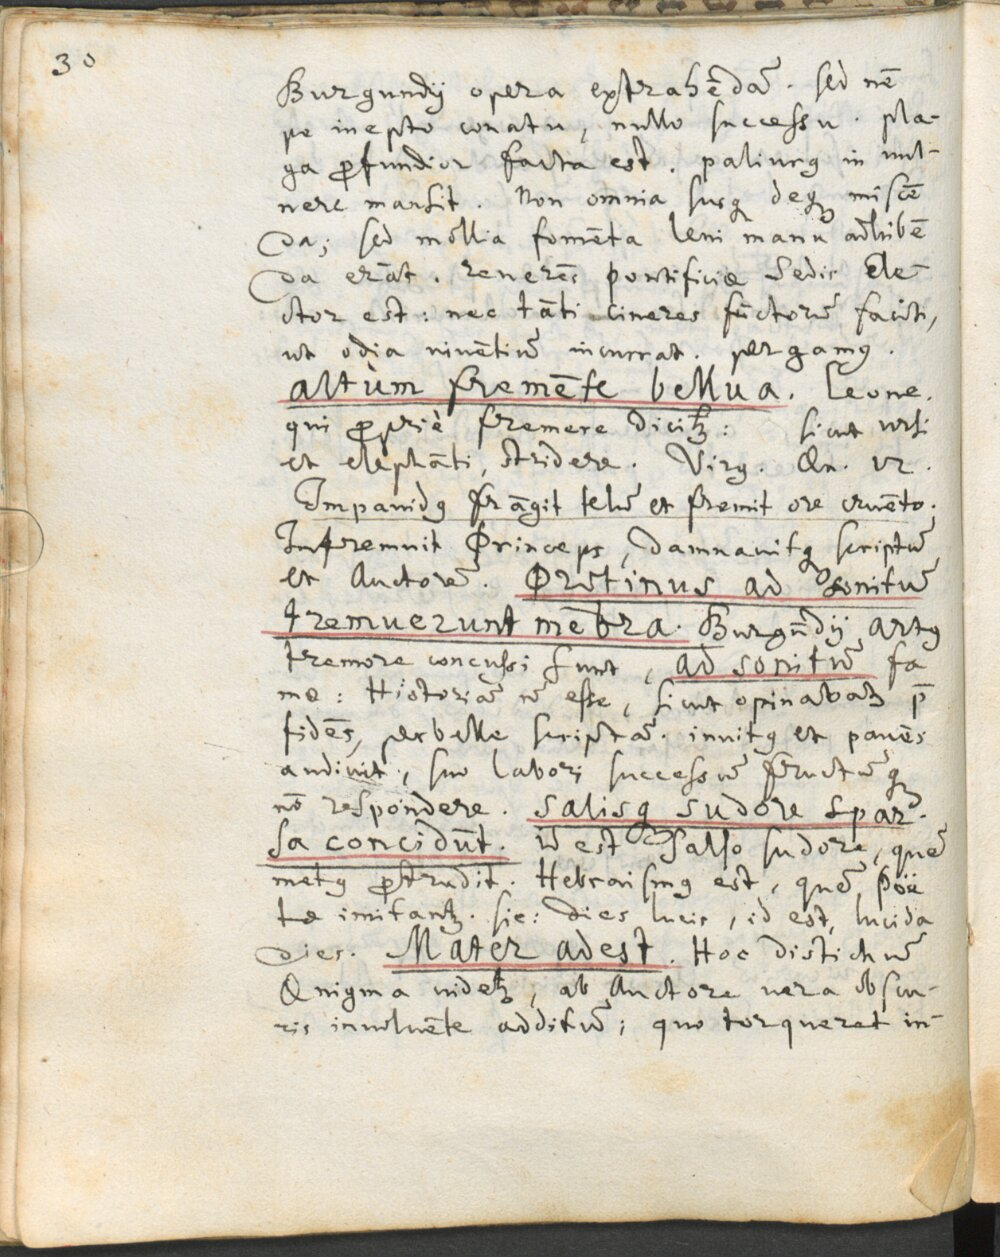 30
Burgundij opera extrahēdā. sed nē
pe inepto conatu, nullo successu. pla-
ga ꝓfundior facta est. paliurꝰ in vul-
nere mansit. Non omnia susq̨ deq̨ miscē
da; sed mollia fomēta leni manu adhibē
da erāt. reuerēs pontificiæ Sedis Ele-
ctor est: nec tāti cineres fūctorū faciti,
ut odia viuētiū incurrat. pergamꝰ.
altùm fremēte bellua. Leone.
qui ꝓpriè fremere dicit᷑: sicut ursi
et elephāti, stridere. Virg. Æn. 12.
Impauidꝰ frāgit telū et fremit ore cruēto.
Infremuit Princeps, damnauitq̨ scriptū
et Auctorē. Protinus ad sonitū
tremuerunt mēbra. Burgūdij artꝰ
tremore concussi sunt, ad sonitū fa
mæ: Historiā nō esse, sicut opinabat᷑ p̄
fidēs, perbelle scriptā. inuitꝰ et pauēs
audiuit, suo labori successū fructūq̨
nō respondere. Salisq̨ sudore spar-
sa concidūt. id est salso sudore, quē
metꝰ ꝓtrudit. Hebraismꝰ est, quē Poë
tæ imitant᷑. sic: dies lucis, id est, lucida
dies. Mater adest. Hoc distichū
Ænigma videt᷑, ab Auctore vera obscu-
ris inuoluēte additū; quo torqueret in-